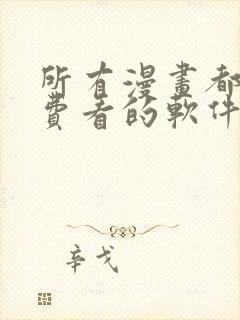 所有漫畫都
費者的軟件
辛戈